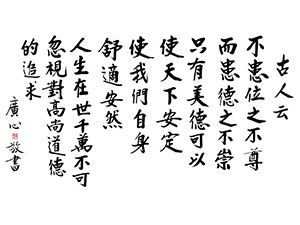 古人云
不患位之不尊
而患德之不崇
只有美德可以
使天下安定
使我們自身
舒適安然
人生在世千萬不可
忽視對高尚道德
的追求
廣心敬書